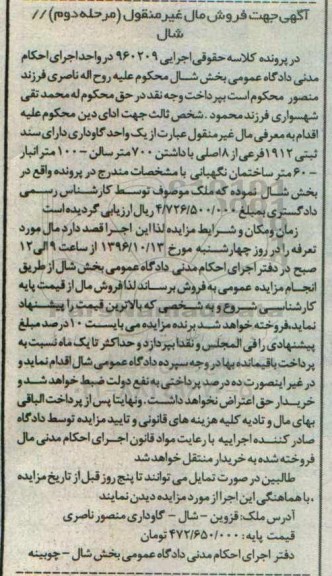 آگهی جهت فروش مال غیر منقول (مرحله دوم) //
شال
در پرونده کلاسه حقوقی اجرایی ۹۶۰۲۰۹ در واحد اجرای احکام
مدنی دادگاه عمومی بخش شال محکوم علیه روح اله ناصری فرزند
منصور محکوم است بپرداخت وجه نقد در حق محکوم له محمد تقی
شهسواری فرزند محمود . شخص ثالث جهت ادای دین محکوم علیه
اقدام به معرفی مال غیر منقول عبارت از یک واحد گاوداری دارای سند
ثبتی ۱۹۱۲ فرعی از ۸ اصلی با داشتن ۷۰۰ متر سالن – ۱۰۰ متر انبار
– ۶۰ متر ساختمان نگهبانی با مشخصات مندرج در پرونده واقع در
بخش شال نموده که ملک موصوف توسط کارشناس رسمی
دادگستری بمبلغ ۴/۷۲۶/۵۰۰/۰۰۰ ریال ارزیابی گردیده است
زمان ومکان و شرایط مزایده لذا این اجرا قصد دارد مال مورد
تعرفه را در روز چهارشنبه مورخ ۱۳۹۶/۱۰/۱۳ از ساعت ۹ الی ۱۲
صبح در دفتر اجرای احکام مدنی دادگاه عمومی بخش شال از طریق
انجام مزایده عمومی به فروش برساند لذا فروش مال از قیمت پایه
کارشناسی شروع و به شخصی که بالاترین قیمت را پیشنهاد
نماید، فروخته خواهد شد. برنده مزایده می بایست ۱۰ درصد مبلغ
پیشنهادی را فی المجلس و نقدا بپردازد و حداکثر تا یک ماه نسبت به
پرداخت باقیمانده بها در وجه سپرده دادگاه عمومی شال اقدام نماید و
در غیر اینصورت ده درصد پرداختی به نفع دولت ضبط خواهد شد و
خریدار حق اعتراض نخواهد داشت . ونهایتا پس از پرداخت الباقی
بهای مال و تادیه کلیه هزینه های قانونی و تایید مزایده توسط دادگاه
صادر کننده اجراییه با رعایت مواد قانون اجرای احکام مدنی مال
فروخته شده به خریدار منتقل خواهد شد
طالبین در صورت تمایل می توانند تا پنج روز قبل از تاریخ مزایده
، با هماهنگی این اجرا از مورد مزایده دیدن نمایند
آدرس ملک : قزوین – شال – گاوداری منصور ناصری
قیمت پایه : ۴۷۲/۶۵۰/۰۰۰ تومان
دفتر اجرای احکام مدنی دادگاه عمومی بخش شال – چوبینه